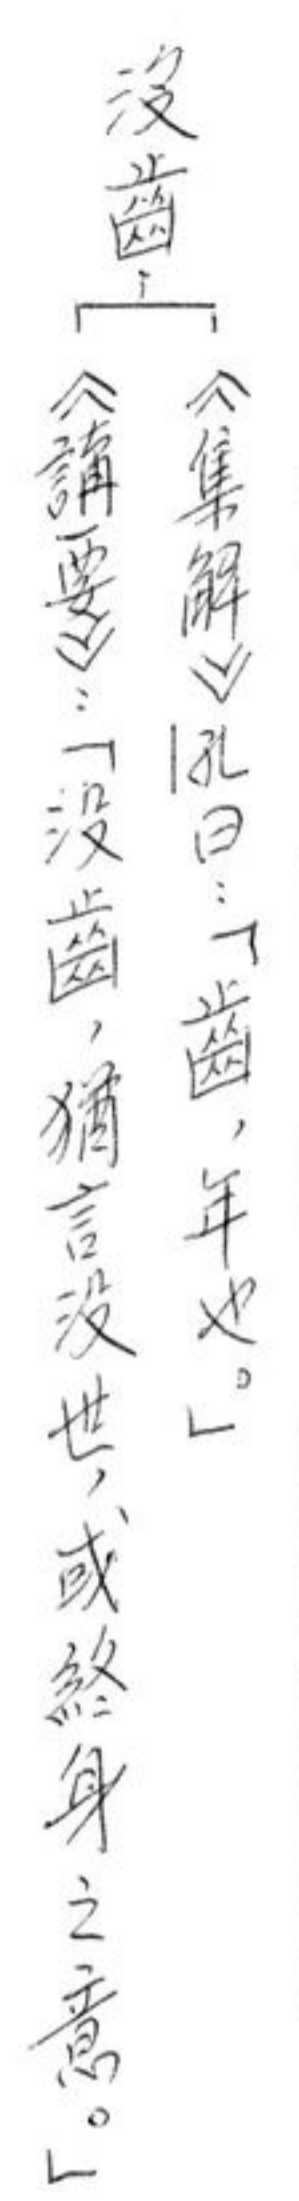 沒齒：
《集解》孔曰：「齒，年也。」
《講要》：「沒齒，猶言沒世，或終身之意。」